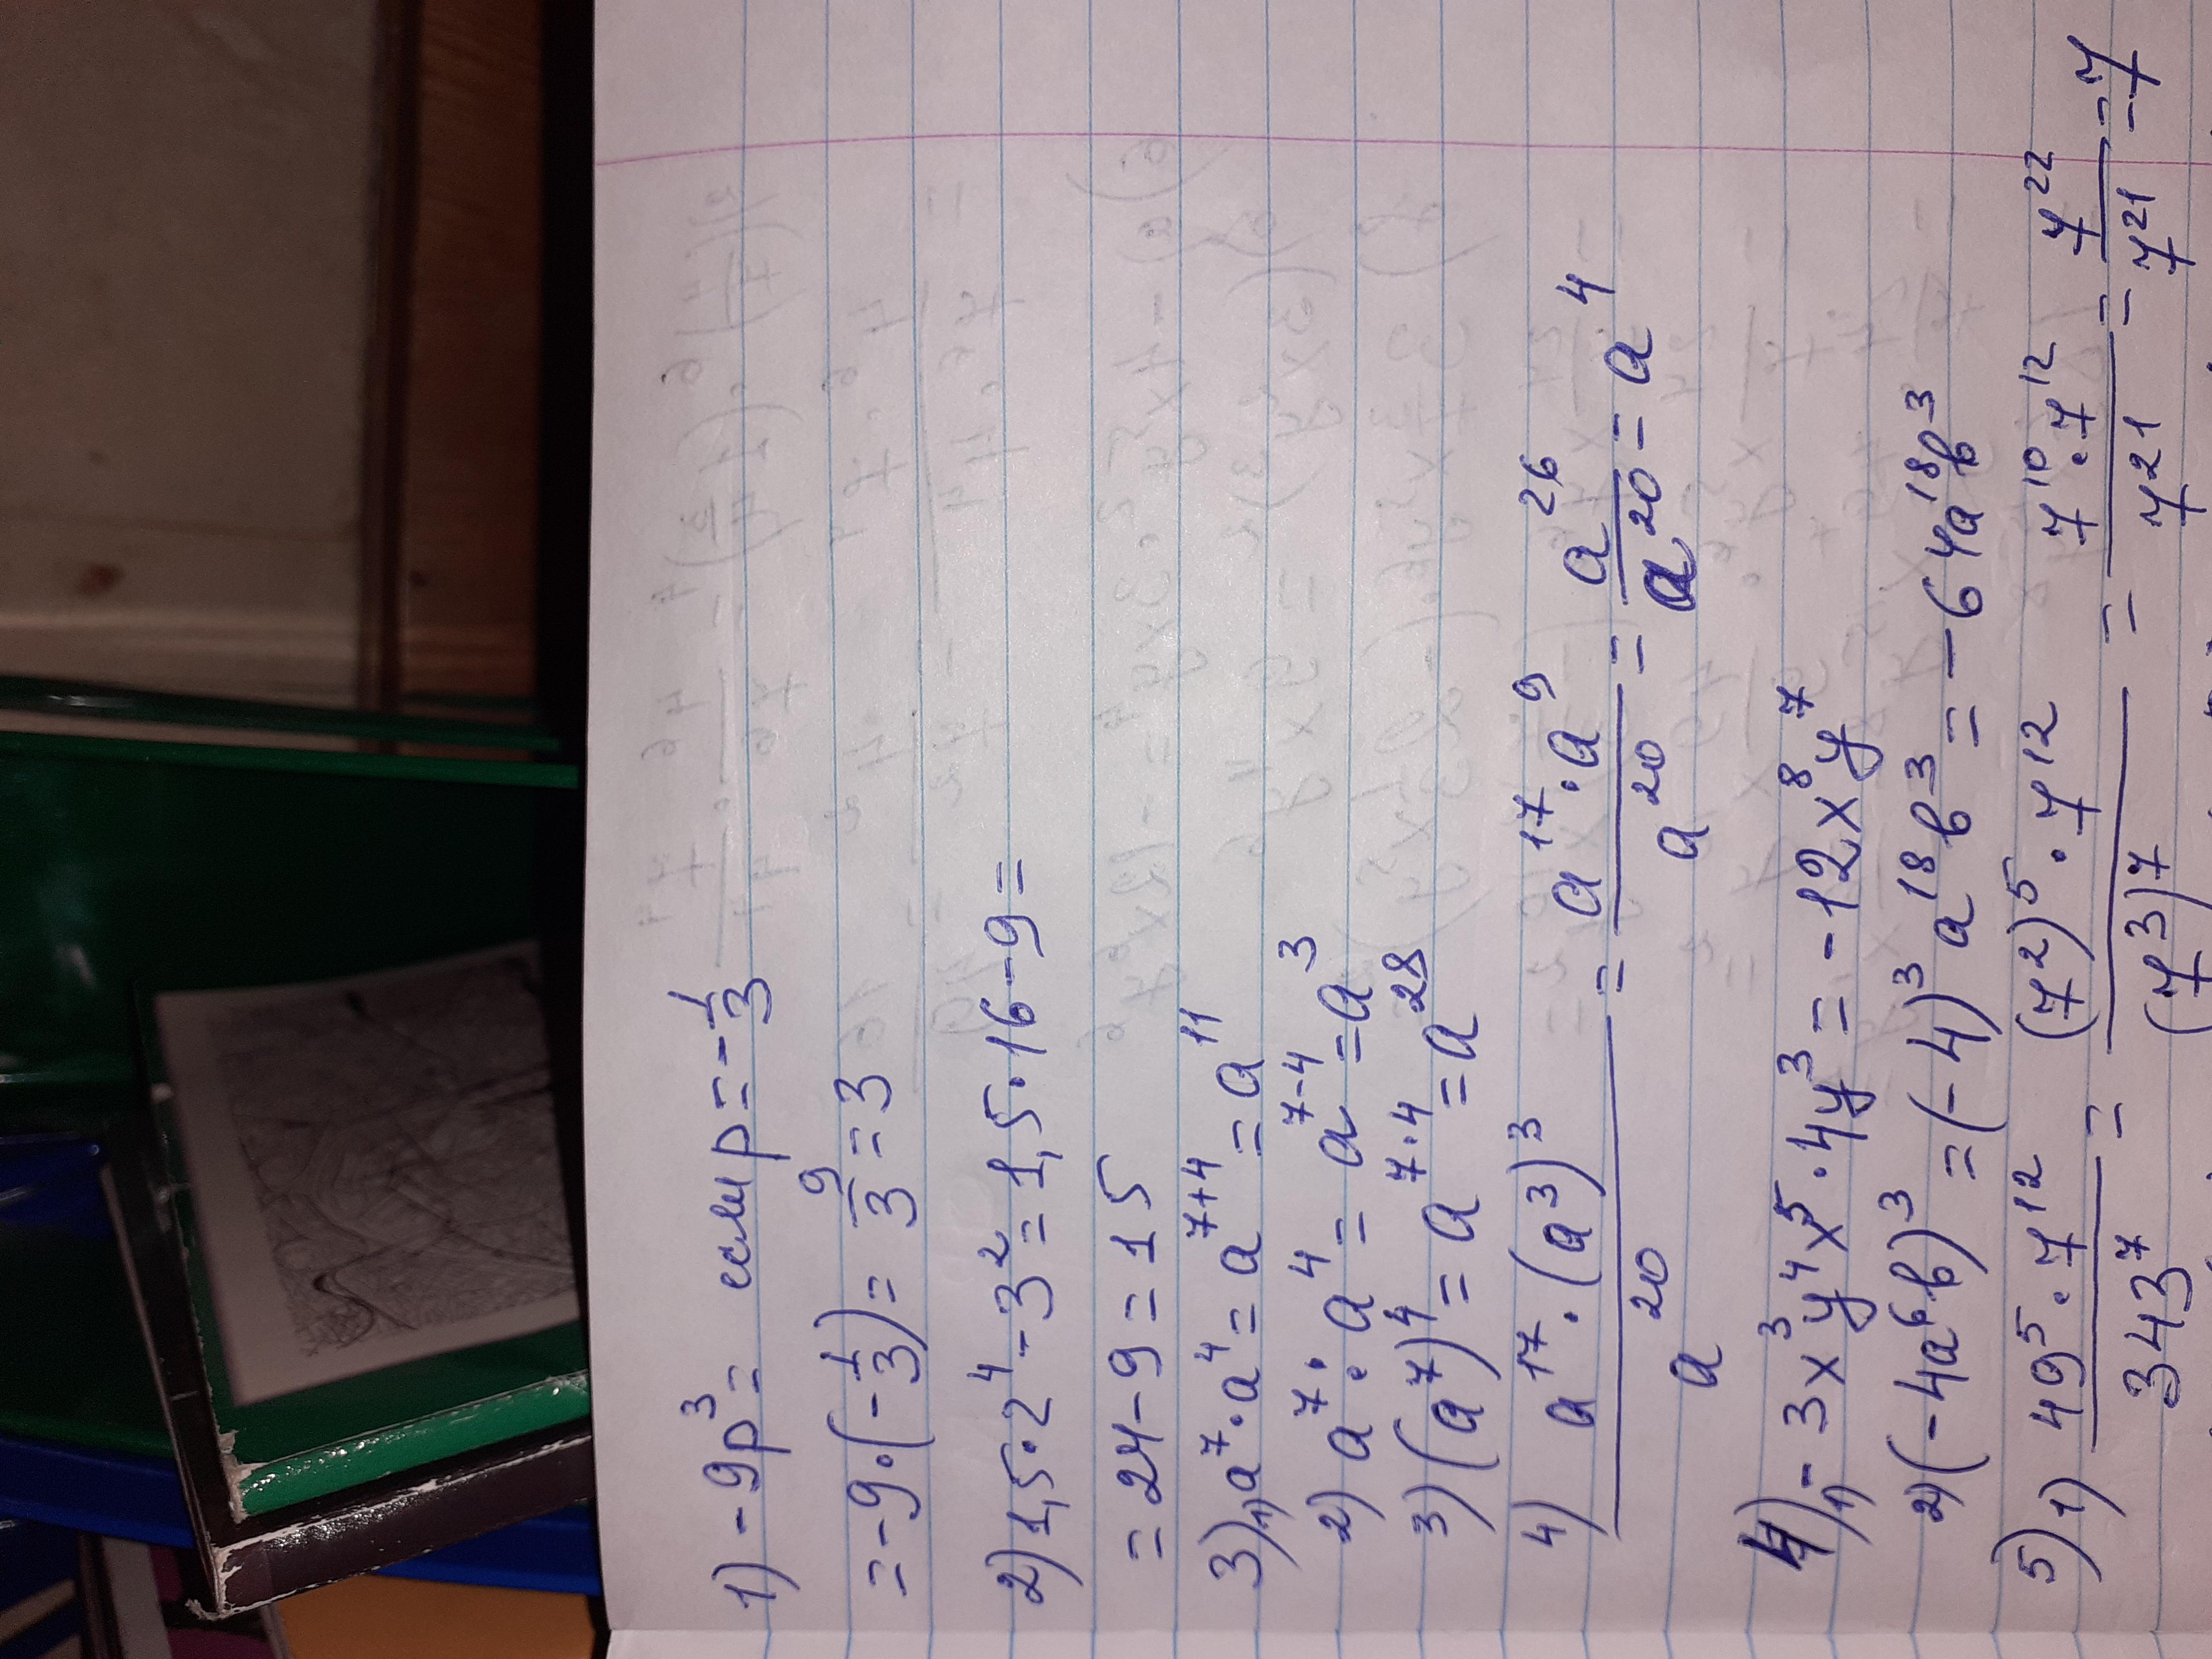 1) -9p³ = если p = -1/3
= -9·(-1/3) = 9/3 = 3
2) 1,5·2⁴-3² = 1,5·16-9 =
= 24-9 = 15
3) 1) a⁷·a⁴ = a⁷⁺⁴ = a¹¹
2) a⁷:a⁴ = a⁷⁻⁴ = a³
3) (a⁷)⁴ = a⁷·⁴ = a²⁸
4) a¹⁷·(a³)³/a²⁰ = a¹⁷·a⁹/a²⁰ = a²⁶/a²⁰ = a⁴
4) 1) -3x³y⁴x⁵·4y³ = -12x⁸y⁷
2) (-4a⁶b)³ = (-4)³a¹⁸b³ = -64a¹⁸b³
5) 1) 49⁵·7¹²/343⁷ = (7²)⁵·7¹²/(7³)⁷ = 7¹⁰·7¹²/7²¹ = 7²²/7²¹ = 7